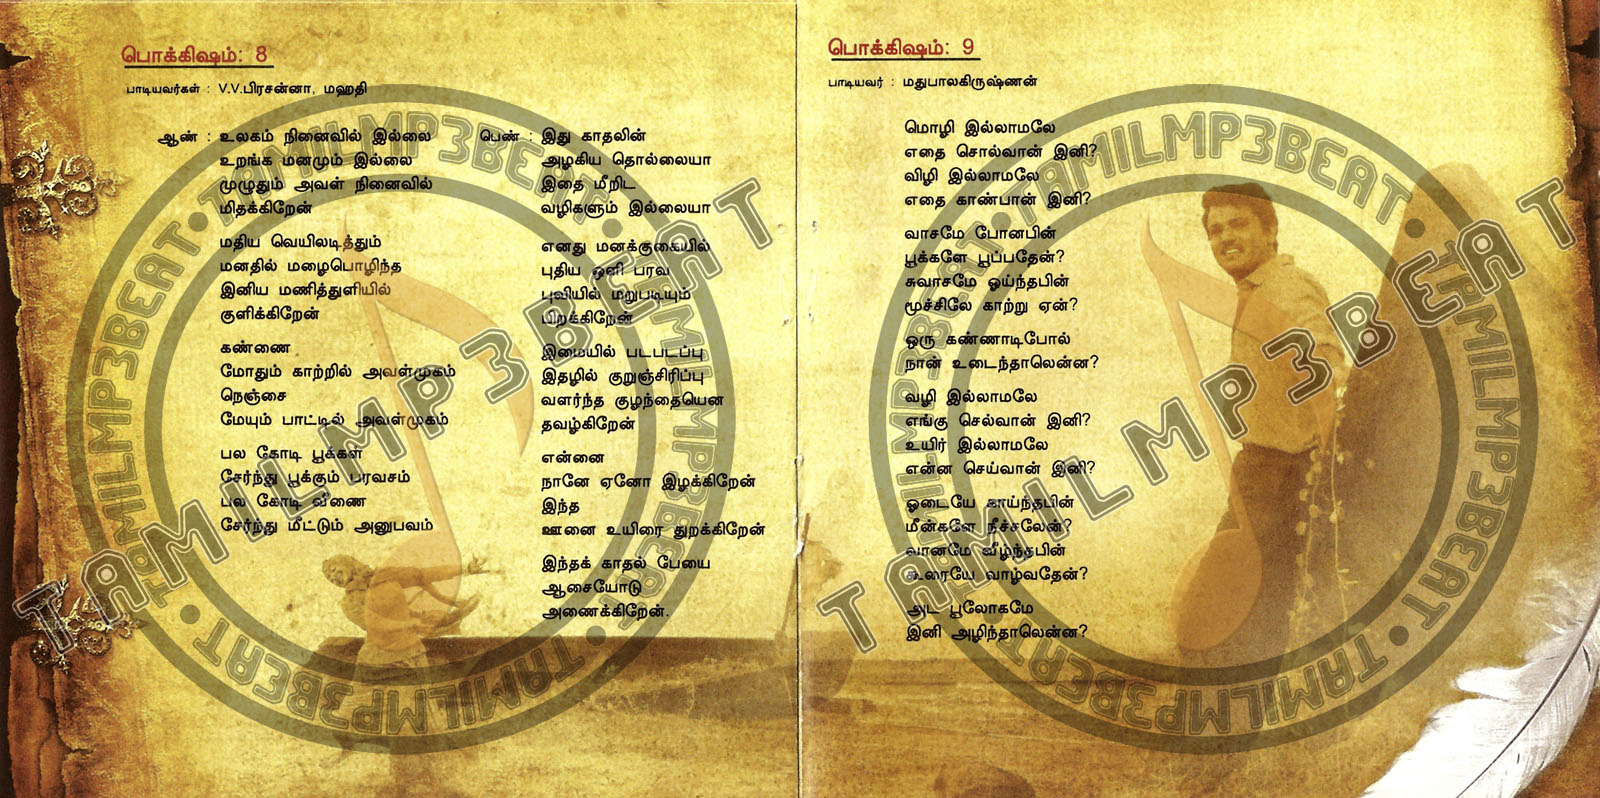 பொக்கிஷம்: 8
பாடியவர்கள் : V.V.பிரசன்னா, மஹதி
ஆண் : உலகம் நினைவில் இல்லை
உறங்க மனமும் இல்லை
முழுதும் அவள் நினைவில்
மிதக்கிறேன்
மதிய வெயிலடித்தும்
மனதில் மழைபொழிந்த
இனிய மணித்துளியில்
குளிக்கிறேன்
கண்ணை
மோதும் காற்றில் அவள்முகம்
நெஞ்சை
மேயும் பாட்டில் அவள்முகம்
பல கோடி பூக்கள்
சேர்ந்து பூக்கும் பரவசம்
பல கோடி வீணை
சேர்ந்து மீட்டும் அனுபவம்
பெண் : இது காதலின்
அழகிய தொல்லையா
இதை மீறிட
வழிகளும் இல்லையா
எனது மனக்குகையில்
புதிய ஒளி பரவ
புவியில் மறுபடியும்
பிறக்கிறேன்
இமையில் படபடப்பு
இதழில் குறுஞ்சிரிப்பு
வளர்ந்த குழந்தையென
தவழ்கிறேன்
என்னை
நானே ஏனோ இழக்கிறேன்
இந்த
ஊனை உயிரை துறக்கிறேன்
இந்தக் காதல் பேயை
ஆசையோடு
அணைக்கிறேன்.
பொக்கிஷம்: 9
பாடியவர் : மதுபாலகிருஷ்ணன்
மொழி இல்லாமலே
எதை சொல்வான் இனி?
விழி இல்லாமலே
எதை காண்பான் இனி?
வாசமே போனபின்
பூக்களே பூப்பதேன்?
சுவாசமே ஓய்ந்தபின்
மூச்சிலே காற்று ஏன்?
ஒரு கண்ணாடிபோல்
நான் உடைந்தாலென்ன?
வழி இல்லாமலே
எங்கு செல்வான் இனி?
உயிர் இல்லாமலே
என்ன செய்வான் இனி?
ஓடையே காய்ந்தபின்
மீன்களே நீச்சலேன்?
வானமே வீழ்ந்தபின்
கூரையே வாழ்வதேன்?
அட பூலோகமே
இனி அழிந்தாலென்ன?
TAMILMP3BEAT
TAMILMP3BEAT • TAMILMP3BEAT • TAMILMP3BEAT • TAMILMP3BEAT • TAMILMP3BEAT
TAMILMP3BEAT
TAMILMP3BEAT • TAMILMP3BEAT • TAMILMP3BEAT • TAMILMP3BEAT • TAMILMP3BEAT